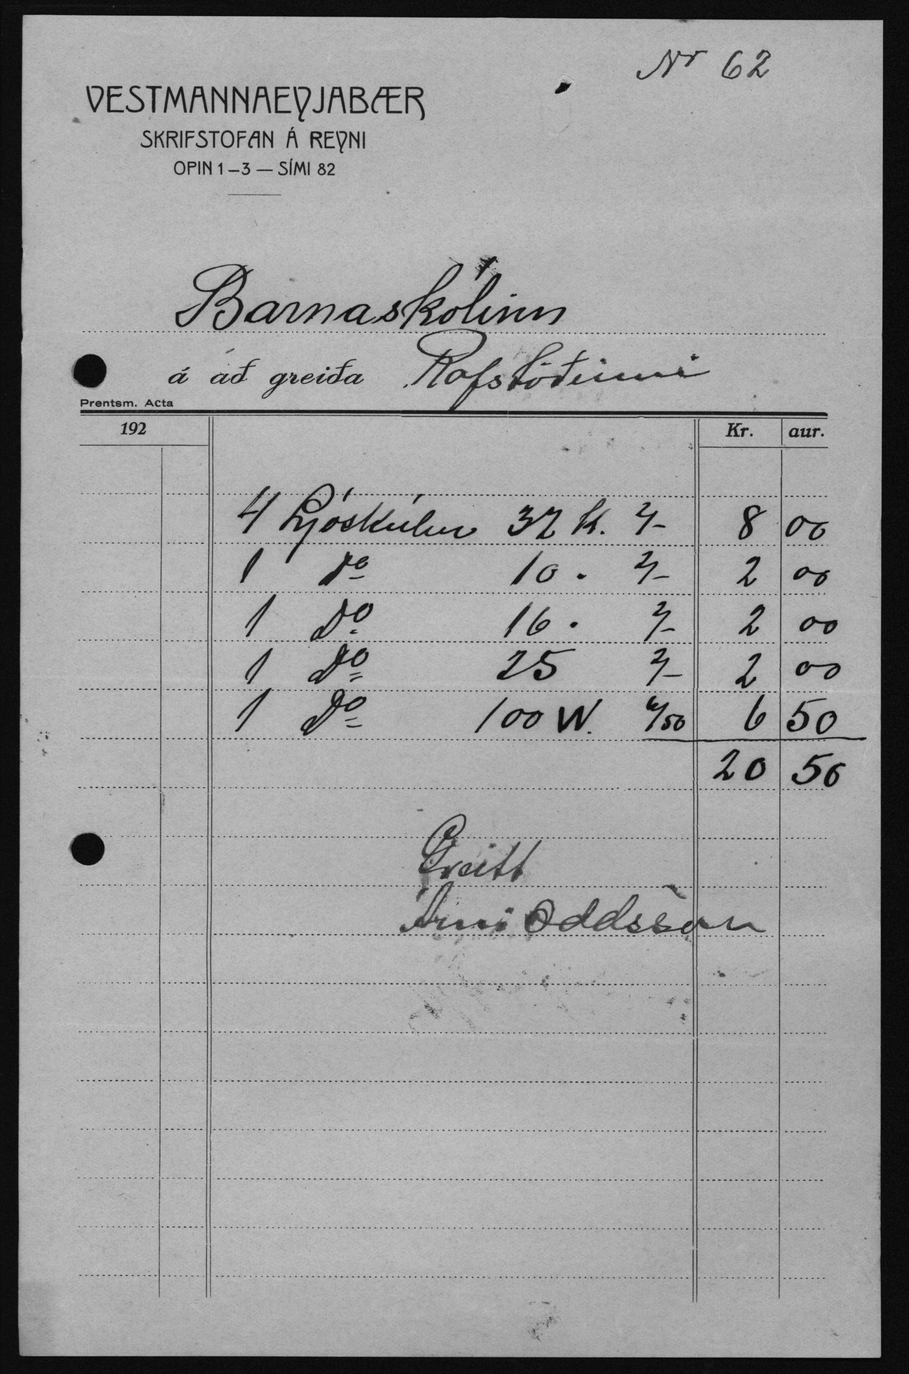 Nr 62
VESTMANNAEYJABÆR
SKRIFSTOFAN Á REYNI
OPIN 1–3 — SÍMI 82
Barnaskólinn
á að greiða Rafstöðinni
Prentsm. Acta
192 Kr. aur.
4 Ljóskúlur 32 k. 2/– 8 00
1 Do 10 . 2/– 2 00
1 Do 16 . 2/– 2 00
1 Do 25 2/– 2 00
1 Do 100 W. 6/50 6 50
20 50
Greitt
Árni Oddsson